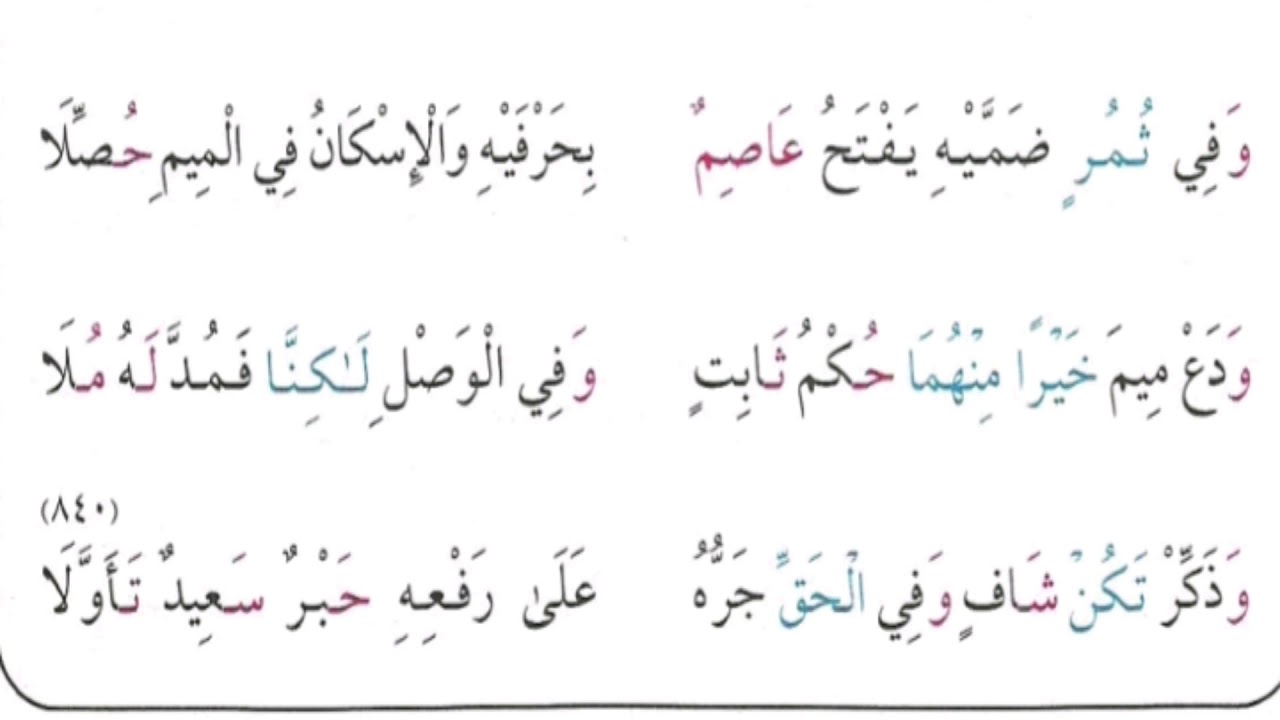 وَفِي ثُمُرٍ ضَمَّيْهِ يَفْتَحُ عَاصِمٌ بِحَرْفَيْهِ وَالْإِسْكَانُ فِي الْمِيمِ حُصِّلَا
وَدَعْ مِيمَ خَيْرًا مِنْهُمَا حُكْمُ ثَابِتٍ وَفِي الْوَصْلِ لَٰكِنَّا فَمُدَّ لَهُ مُلَا
(٨٤٠)
وَذَكِّرْ تَكُنْ شَافٍ وَفِي الْحَقِّ جَرُّهُ عَلَىٰ رَفْعِهِ حَبْرٌ سَعِيدٌ تَأَوَّلَا